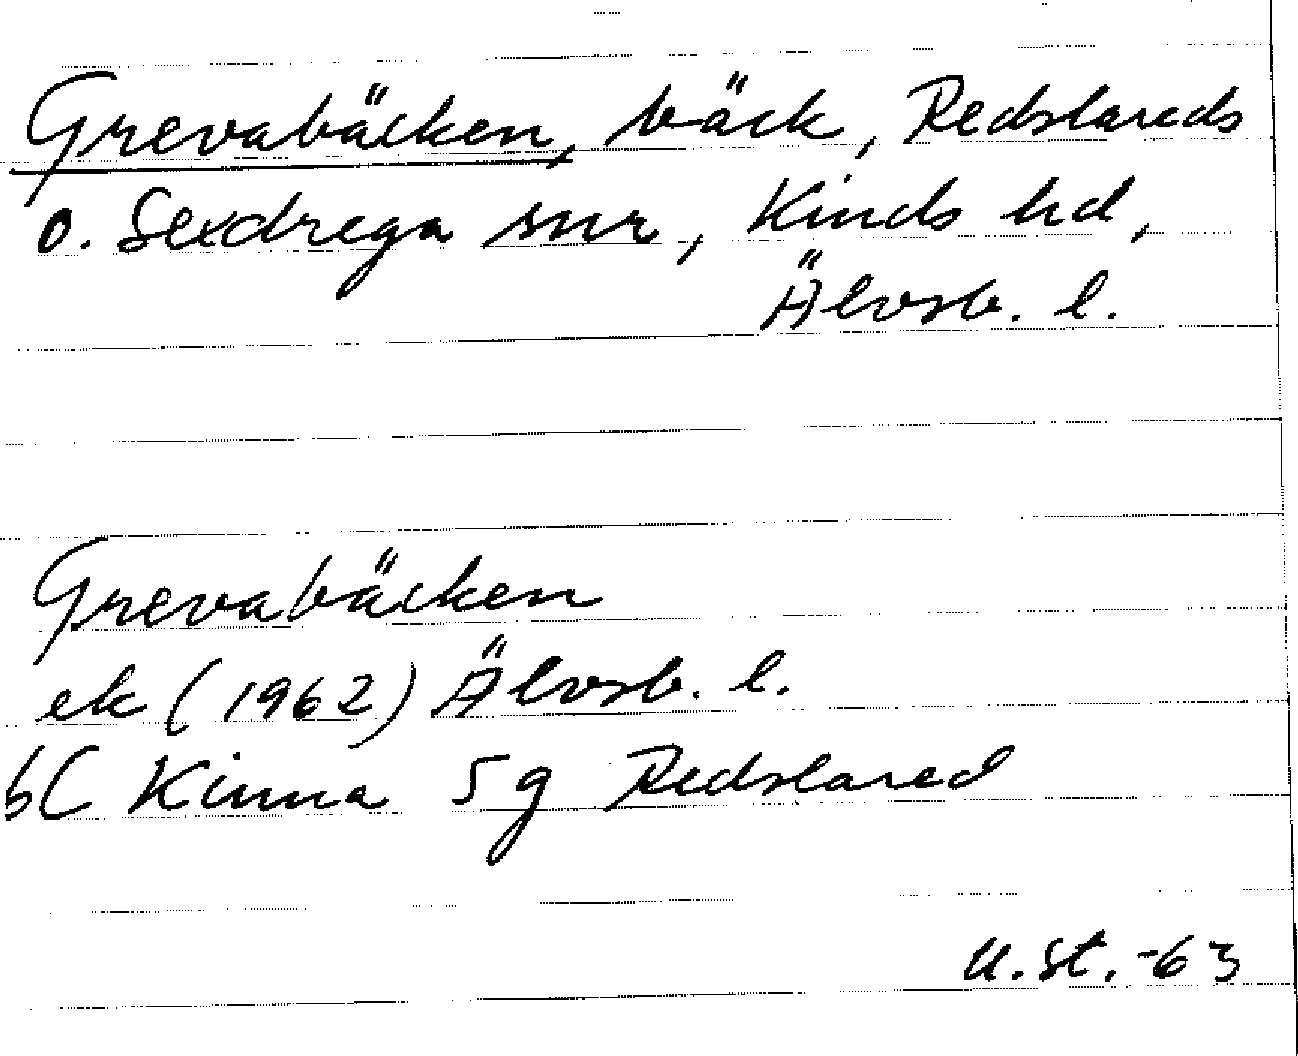 Grevabäcken, bäck, Redslareds
o. Sexdrega snr, Kinds hd,
Älvsb. l.
Grevabäcken
ek (1962) Älvsb. l.
6C Kinna 5g Redslared
U.St.-63